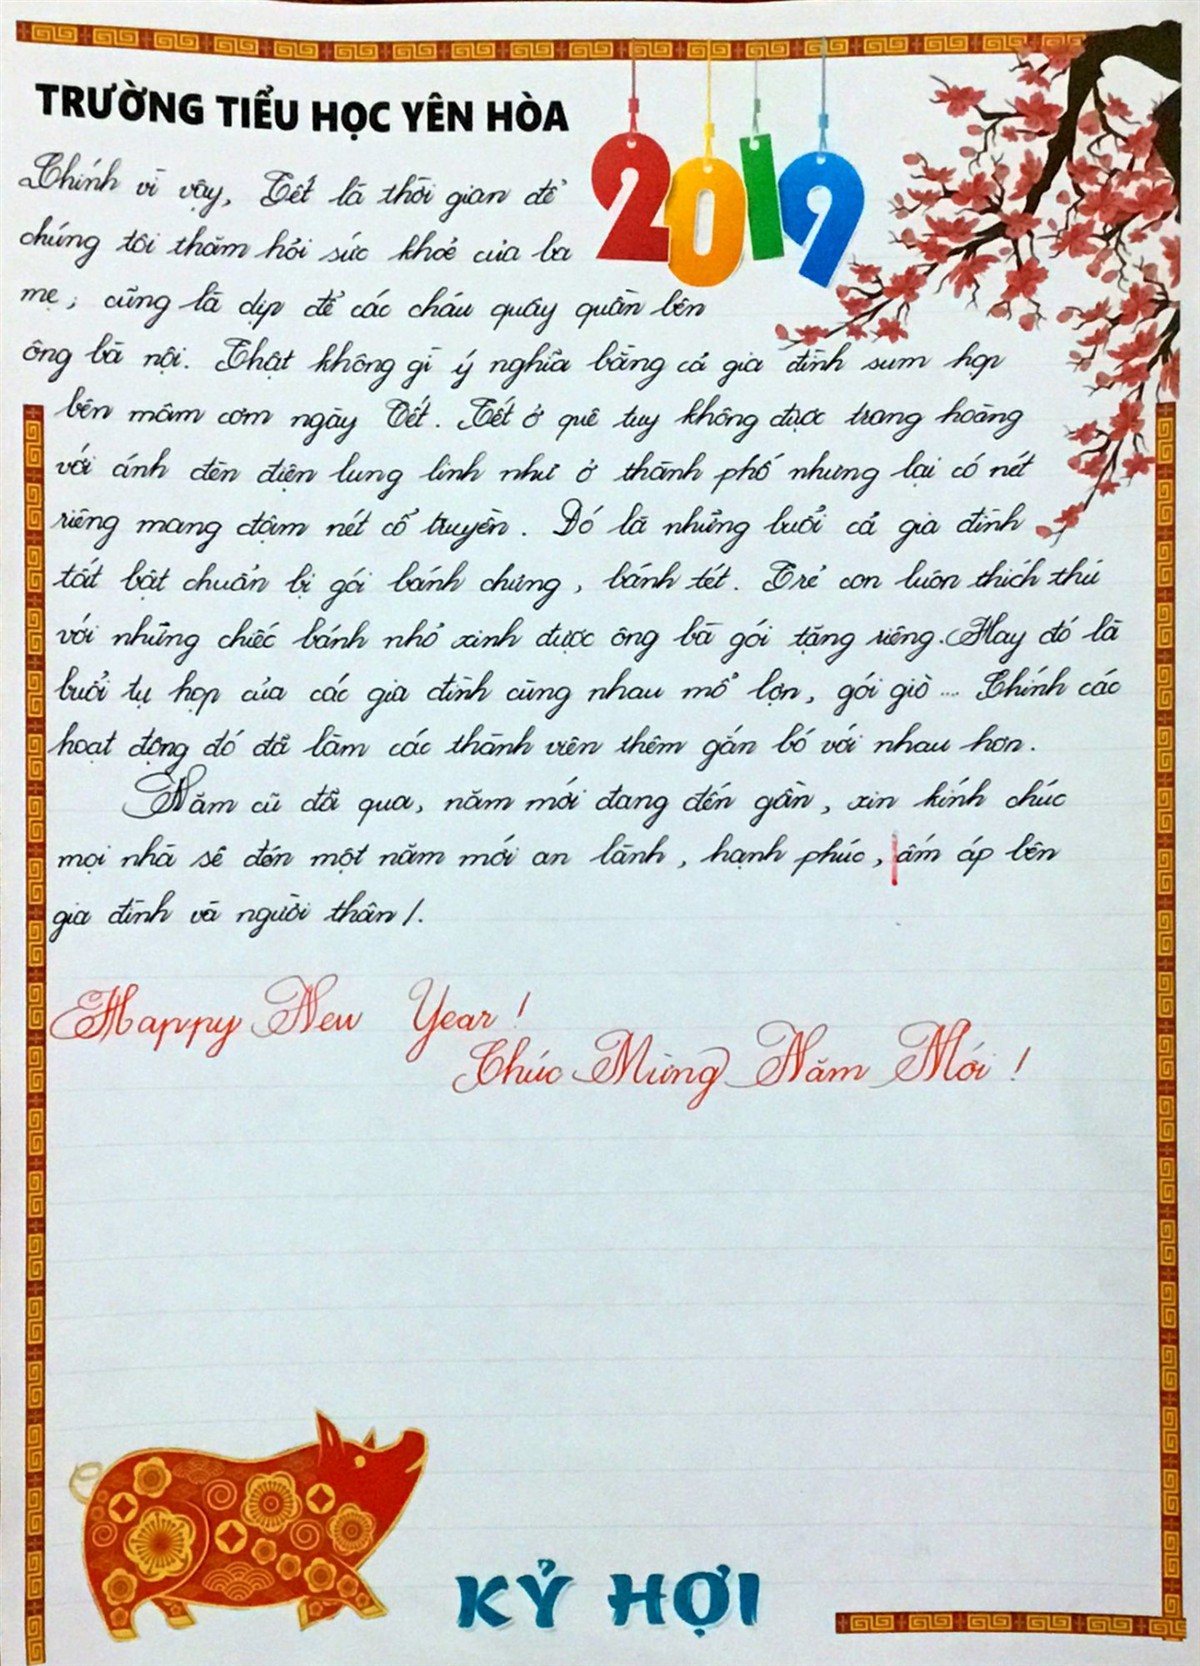 TRƯỜNG TIỂU HỌC YÊN HÒA
2019
Chính vì vậy, Tết là thời gian để
chúng tôi thăm hỏi sức khoẻ của ba
mẹ; cũng là dịp để các cháu quây quần bên
ông bà nội. Thật không gì ý nghĩa bằng cả gia đình sum họp
bên mâm cơm ngày Tết. Tết ở quê tuy không được trang hoàng
với ánh đèn điện lung linh như ở thành phố nhưng lại có nét
riêng mang đậm nét cổ truyền. Đó là những buổi cả gia đình
tất bật chuẩn bị gói bánh chưng, bánh tét. Trẻ con luôn thích thú
với những chiếc bánh nhỏ xinh được ông bà gói tặng riêng. Hay đó là
buổi tụ họp của các gia đình cùng nhau mổ lợn, gói giò ... Chính các
hoạt động đó đã làm các thành viên thêm gắn bó với nhau hơn.
Năm cũ đã qua, năm mới đang đến gần, xin kính chúc
mọi nhà sẽ đón một năm mới an lành, hạnh phúc, ấm áp bên
gia đình và người thân /.
Happy New Year !
Chúc Mừng Năm Mới !
KỶ HỢI